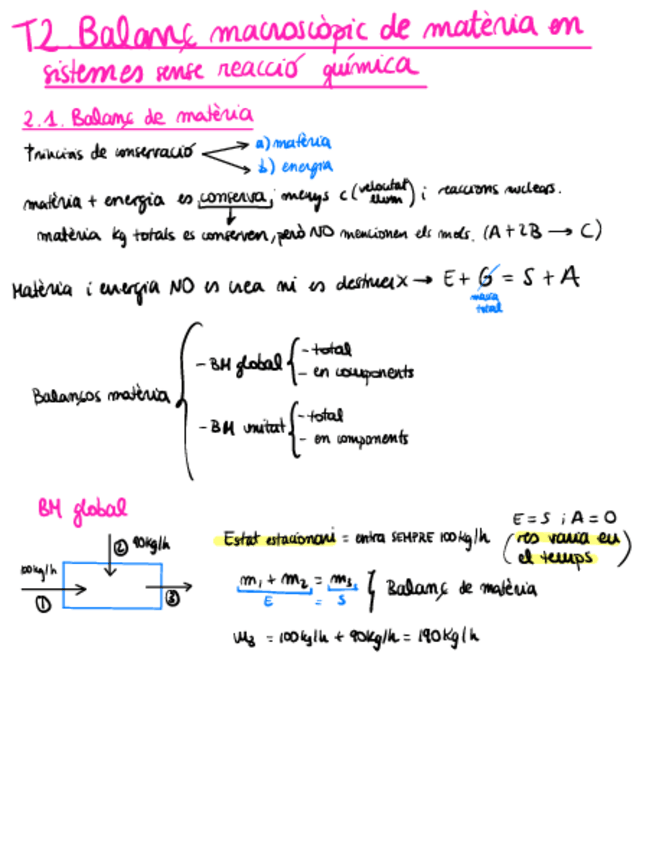 T2. Balanç macroscòpic de matèria en
sistemes sense reacció química
2.1. Balanç de matèria
Principis de conservació
a) matèria
b) energia
matèria + energia es conserva, menys c (velocitat llum) i reaccions nuclears.
matèria kg totals es conserven, però NO mencionen els mols. (A + 2B → C)
Matèria i energia NO es crea ni es destrueix → E + G = S + A
massa
total
Balanços matèria
- BM global
- total
- en components
- BM unitat
- total
- en components
BM global
② 90kg/h
100kg/h
①
③
Estat estacionari = entra SEMPRE 100kg/h
E = S i A = 0
(res varia en
el temps)
m₁ + m₂ = m₃ } Balanç de matèria
E = S
m₃ = 100kg/h + 90kg/h = 190kg/h